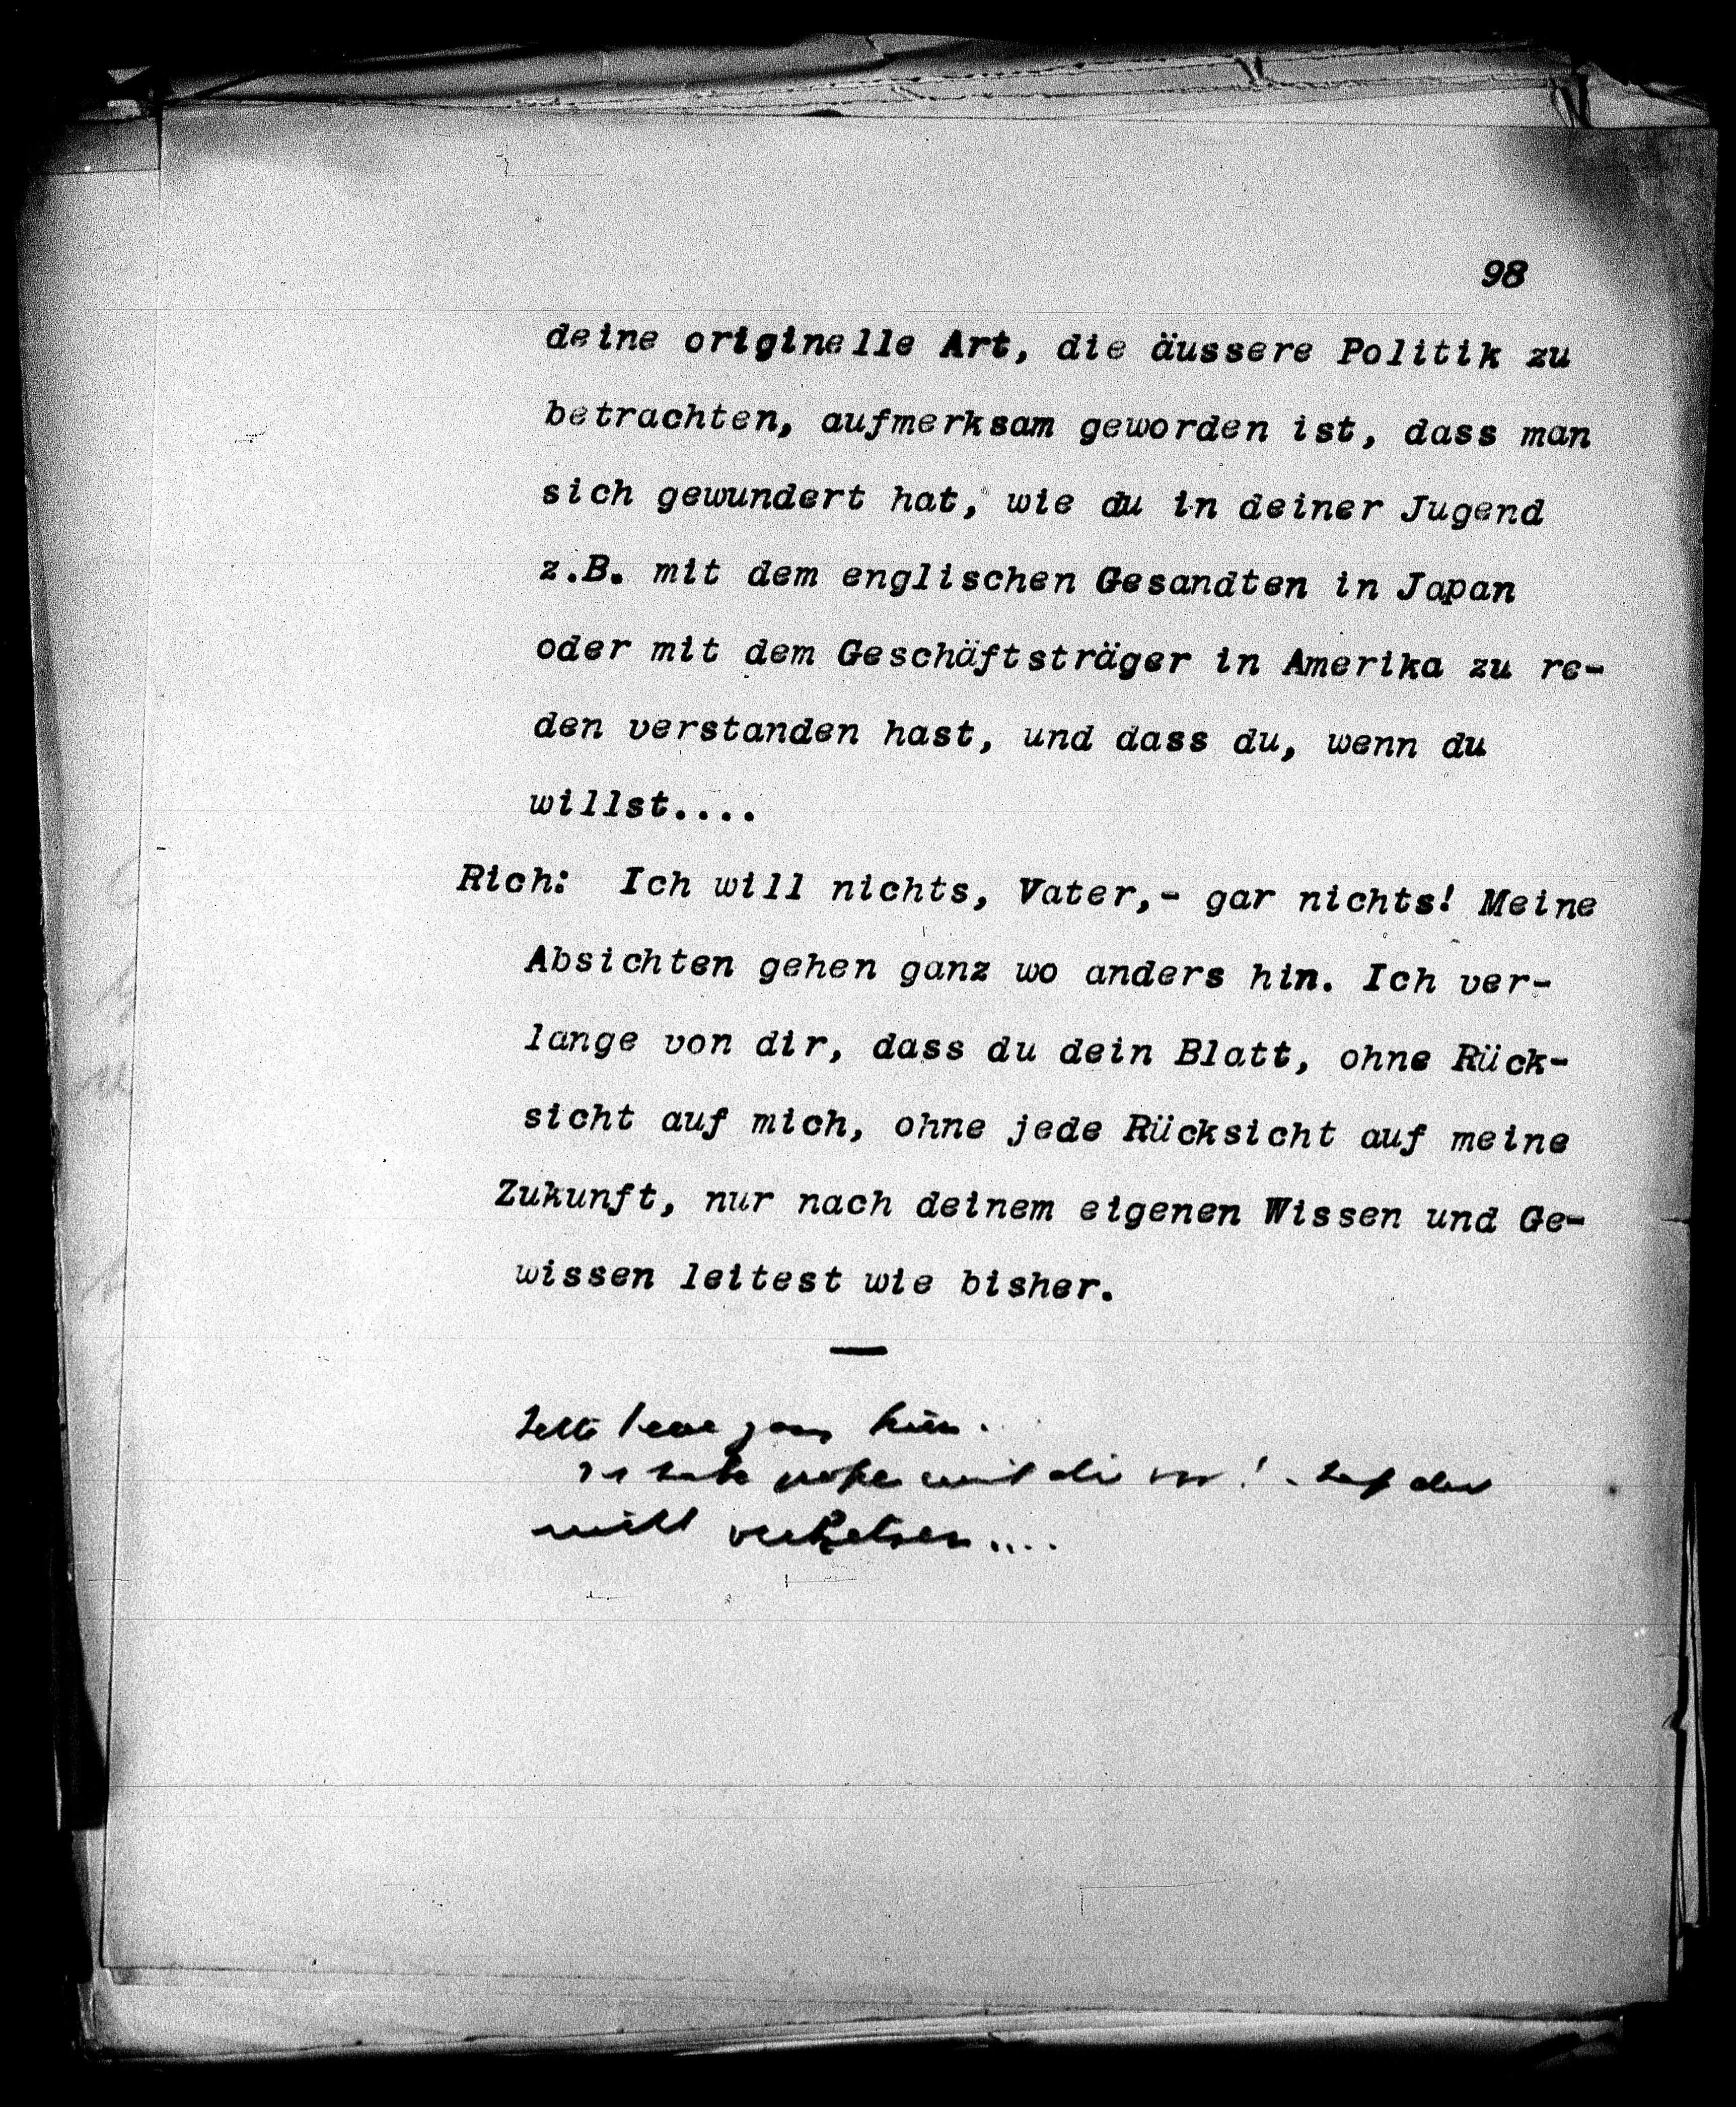 98
deine originelle Art, die äussere Politik zu
betrachten, aufmerksam geworden ist, dass man
sich gewundert hat, wie du in deiner Jugend
z.B. mit dem englischen Gesandten in Japan
oder mit dem Geschäftsträger in Amerika zu re-
den verstanden hast, und dass du, wenn du
willst....
Rich: Ich will nichts, Vater,- gar nichts! Meine
Absichten gehen ganz wo anders hin. Ich ver-
lange von dir, dass du dein Blatt, ohne Rück-
sicht auf mich, ohne jede Rücksicht auf meine
Zukunft, nur nach deinem eigenen Wissen und Ge-
wissen leitest wie bisher.
—
mit